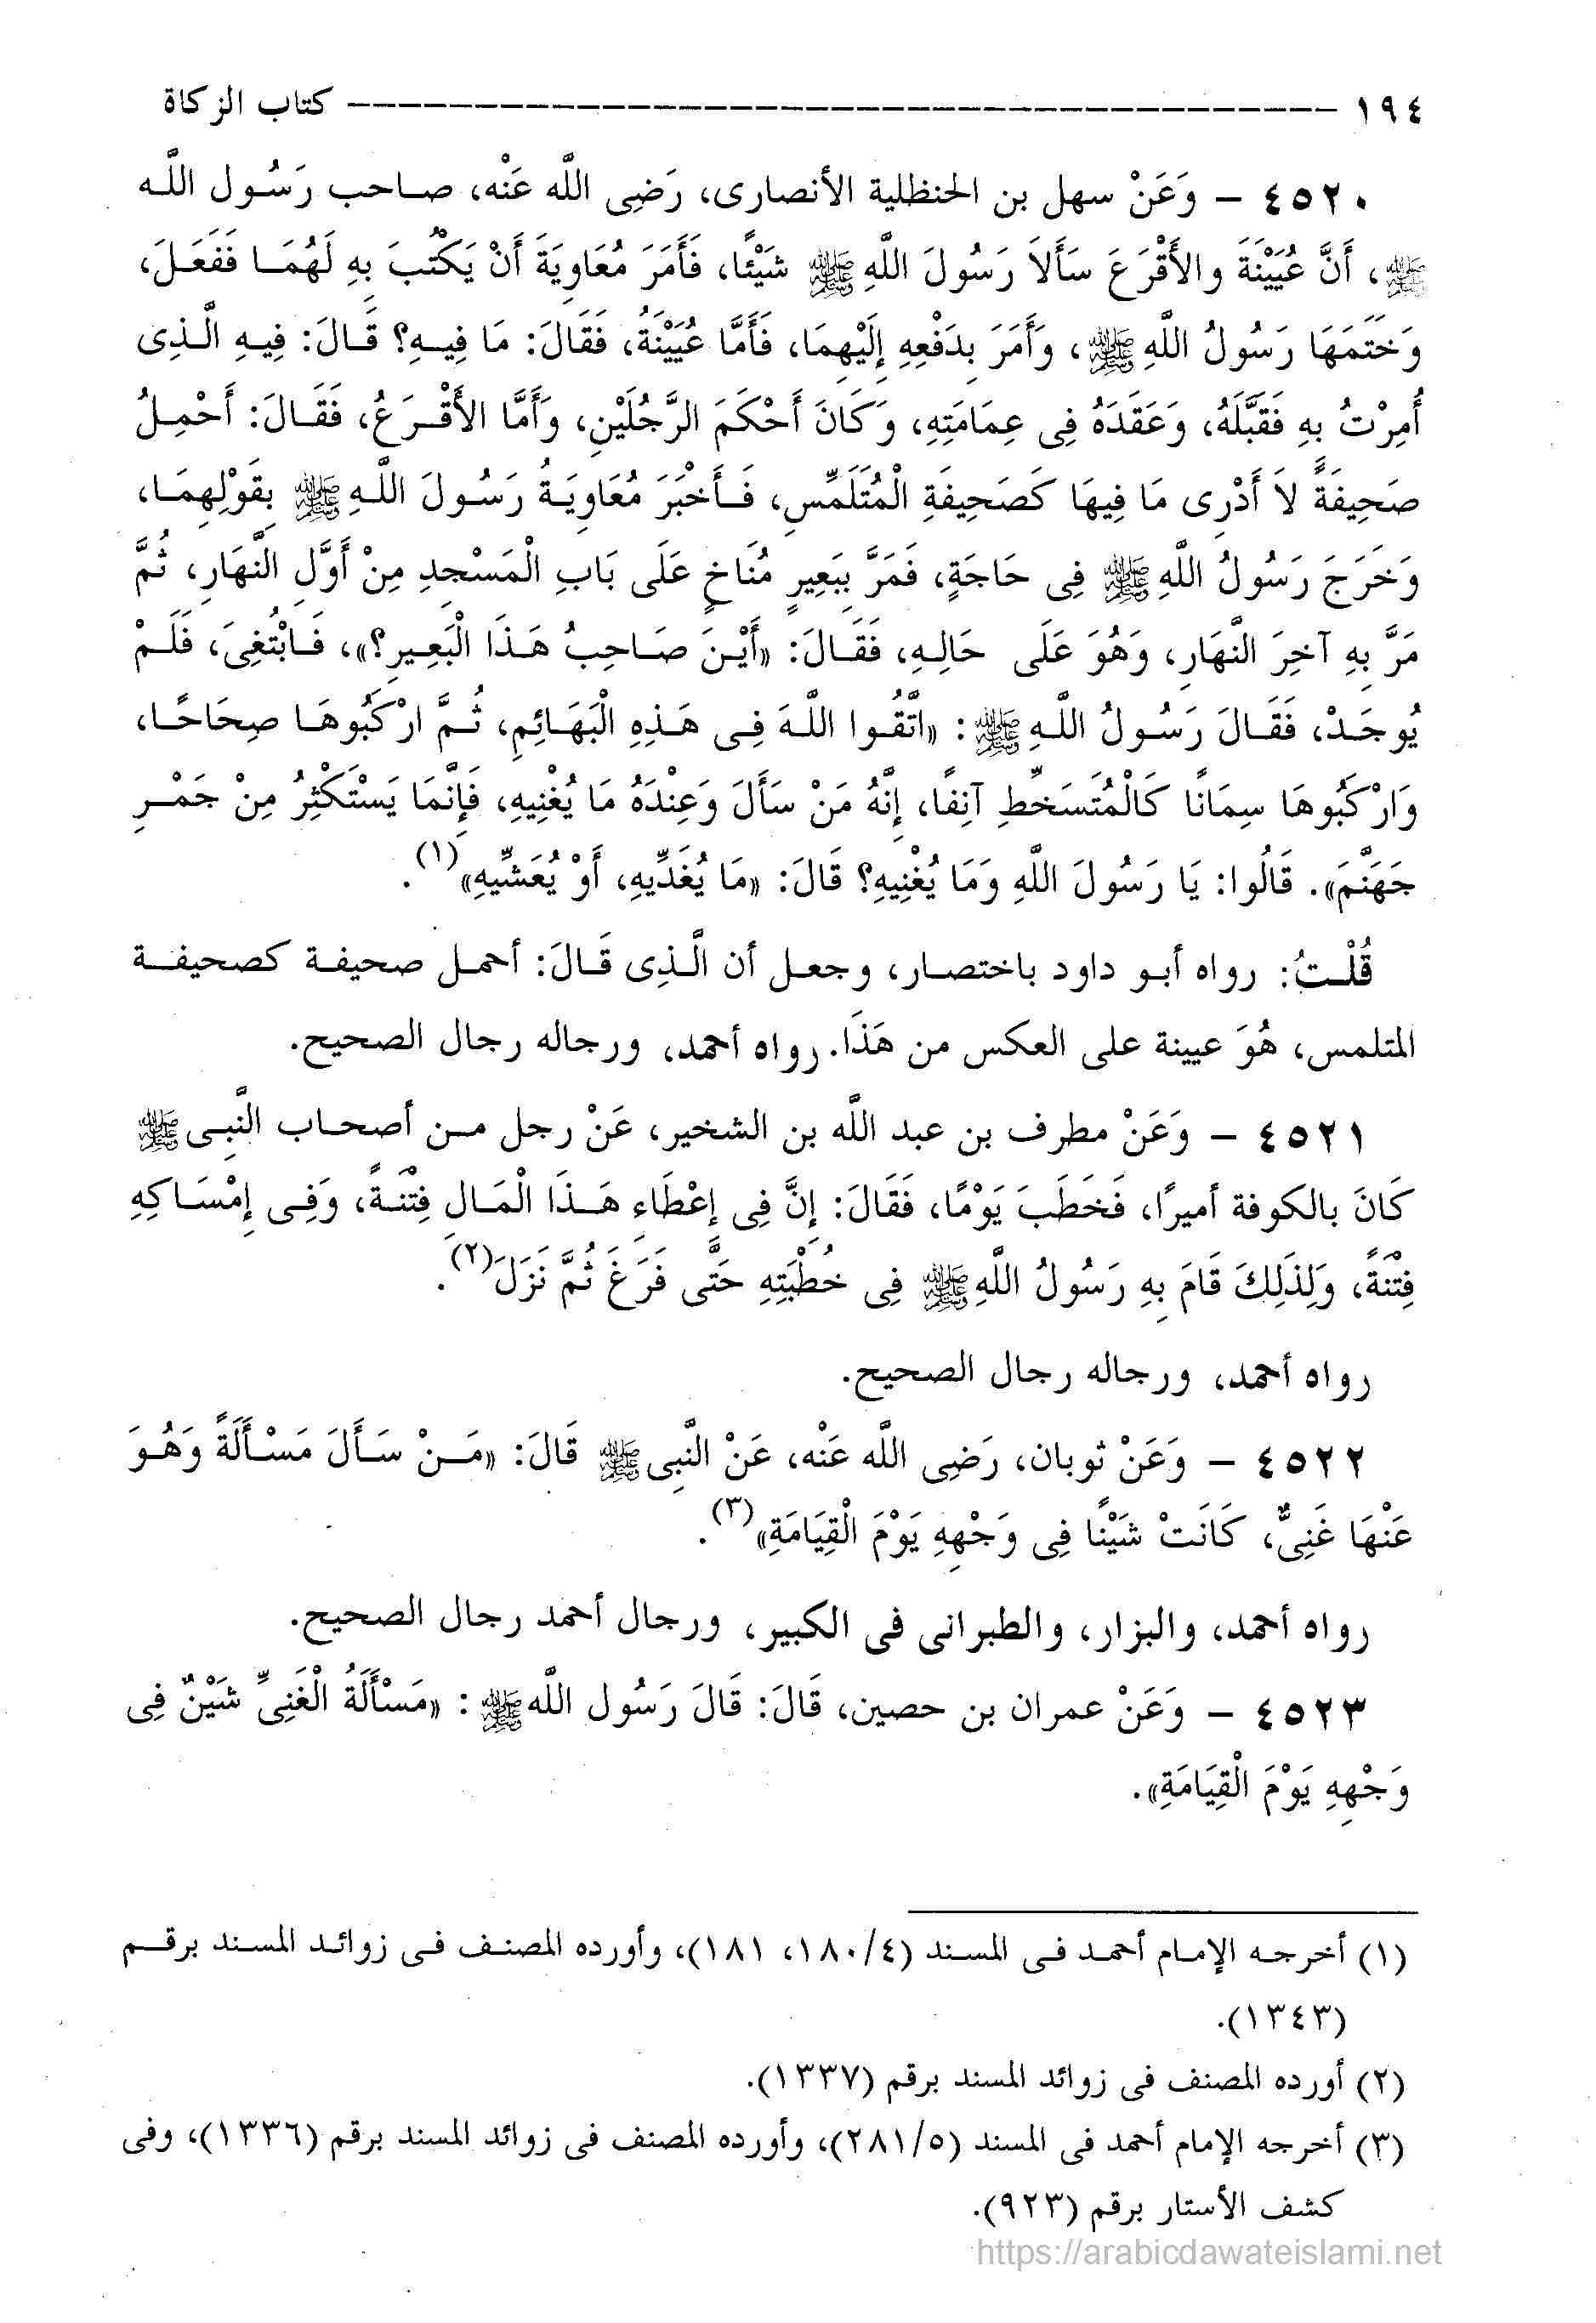 ١٩٤ ------------------------------------------ كتاب الزكاة
٤٥٢٠ – وَعَنْ سهل بن الحنظلية الأنصارى، رَضِى اللَّه عَنْه، صاحب رَسُول اللَّه
ﷺ، أَنَّ عُيَيْنَةَ والأَقْرَعَ سَأَلاَ رَسُولَ اللَّهِ ﷺ شَيْئًا، فَأَمَرَ مُعَاوِيَةَ أَنْ يَكْتُبَ بِهِ لَهُمَا فَفَعَلَ،
وَخَتَمَهَا رَسُولُ اللَّهِ ﷺ، وَأَمَرَ بِدَفْعِهِ إِلَيْهِمَا، فَأَمَّا عُيَيْنَةُ، فَقَالَ: مَا فِيهِ؟ قَالَ: فِيهِ الَّذِى
أُمِرْتُ بِهِ فَقَبَّلَهُ، وَعَقَدَهُ فِى عِمَامَتِهِ، وَكَانَ أَحْكَمَ الرَّجُلَيْنِ، وَأَمَّا الأَقْرَعُ، فَقَالَ: أَحْمِلُ
صَحِيفَةً لاَ أَدْرِى مَا فِيهَا كَصَحِيفَةِ الْمُتَلَمِّسِ، فَأَخْبَرَ مُعَاوِيَةُ رَسُولَ اللَّهِ ﷺ بِقَوْلِهِمَا،
وَخَرَجَ رَسُولُ اللَّهِ ﷺ فِى حَاجَةٍ، فَمَرَّ بِبَعِيرٍ مُنَاخٍ عَلَى بَابِ الْمَسْجِدِ مِنْ أَوَّلِ النَّهَارِ، ثُمَّ
مَرَّ بِهِ آخِرَ النَّهَارِ، وَهُوَ عَلَى حَالِهِ، فَقَالَ: «أَيْنَ صَاحِبُ هَذَا الْبَعِيرِ؟»، فَابْتُغِىَ، فَلَمْ
يُوجَدْ، فَقَالَ رَسُولُ اللَّهِ ﷺ: «اتَّقُوا اللَّهَ فِى هَذِهِ الْبَهَائِمِ، ثُمَّ ارْكَبُوهَا صِحَاحًا،
وَارْكَبُوهَا سِمَانًا كَالْمُتَسَخِّطِ آنِفًا، إِنَّهُ مَنْ سَأَلَ وَعِنْدَهُ مَا يُغْنِيهِ، فَإِنَّمَا يَسْتَكْثِرُ مِنْ جَمْرِ
جَهَنَّمَ». قَالُوا: يَا رَسُولَ اللَّهِ وَمَا يُغْنِيهِ؟ قَالَ: «مَا يُغَدِّيهِ، أَوْ يُعَشِّيهِ»(١).
قُلْتُ: رواه أبو داود باختصار، وجعل أن الَّذِى قَالَ: أحمل صحيفة كصحيفة
المتلمس، هُوَ عيينة على العكس من هَذَا. رواه أحمد، ورجاله رجال الصحيح.
٤٥٢١ – وَعَنْ مطرف بن عبد اللَّه بن الشخير، عَنْ رجل من أصحاب النَّبِى ﷺ
كَانَ بالكوفة أميرًا، فَخَطَبَ يَوْمًا، فَقَالَ: إِنَّ فِى إِعْطَاءِ هَذَا الْمَالِ فِتْنَةً، وَفِى إِمْسَاكِهِ
فِتْنَةً، وَلِذَلِكَ قَامَ بِهِ رَسُولُ اللَّهِ ﷺ فِى خُطْبَتِهِ حَتَّى فَرَغَ ثُمَّ نَزَلَ(٢).
رواه أحمد، ورجاله رجال الصحيح.
٤٥٢٢ – وَعَنْ ثوبان، رَضِى اللَّه عَنْه، عَنْ النَّبِى ﷺ قَالَ: «مَنْ سَأَلَ مَسْأَلَةً وَهُوَ
عَنْهَا غَنِىٌّ، كَانَتْ شَيْنًا فِى وَجْهِهِ يَوْمَ الْقِيَامَةِ»(٣).
رواه أحمد، والبزار، والطبرانى فى الكبير، ورجال أحمد رجال الصحيح.
٤٥٢٣ – وَعَنْ عمران بن حصين، قَالَ: قَالَ رَسُول اللَّه ﷺ: «مَسْأَلَةُ الْغَنِىِّ شَيْنٌ فِى
وَجْهِهِ يَوْمَ الْقِيَامَةِ».
(١) أخرجه الإمام أحمد فى المسند (٤/١٨٠، ١٨١)، وأورده المصنف فى زوائد المسند برقم
(١٣٤٣).
(٢) أورده المصنف فى زوائد المسند برقم (١٣٣٧).
(٣) أخرجه الإمام أحمد فى المسند (٥/٢٨١)، وأورده المصنف فى زوائد المسند برقم (١٣٣٦)، وفى
كشف الأستار برقم (٩٢٣).
https://arabicdawateislami.net